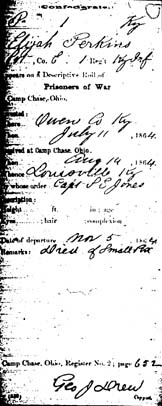 Confederate.
P. 1 Ky
Elijah Perkins
, Co. 1 Reg't Ky Inf
Appears on a Descriptive Roll of
Prisoners of War
Camp Chase, Ohio.
Owen Co Ky
July 11, 1864
Arrived at Camp Chase, Ohio.
Aug 14, 1864
whence Louisville Ky
By whose order Capt S E Jones
Description:
Height ft. in; age
; hair ; complexion
Date of departure Nov 5 1864
Remarks: Died of Small Pox
Camp Chase, Ohio, Register No. 2; page 652
Geo J Drew
Copyist.